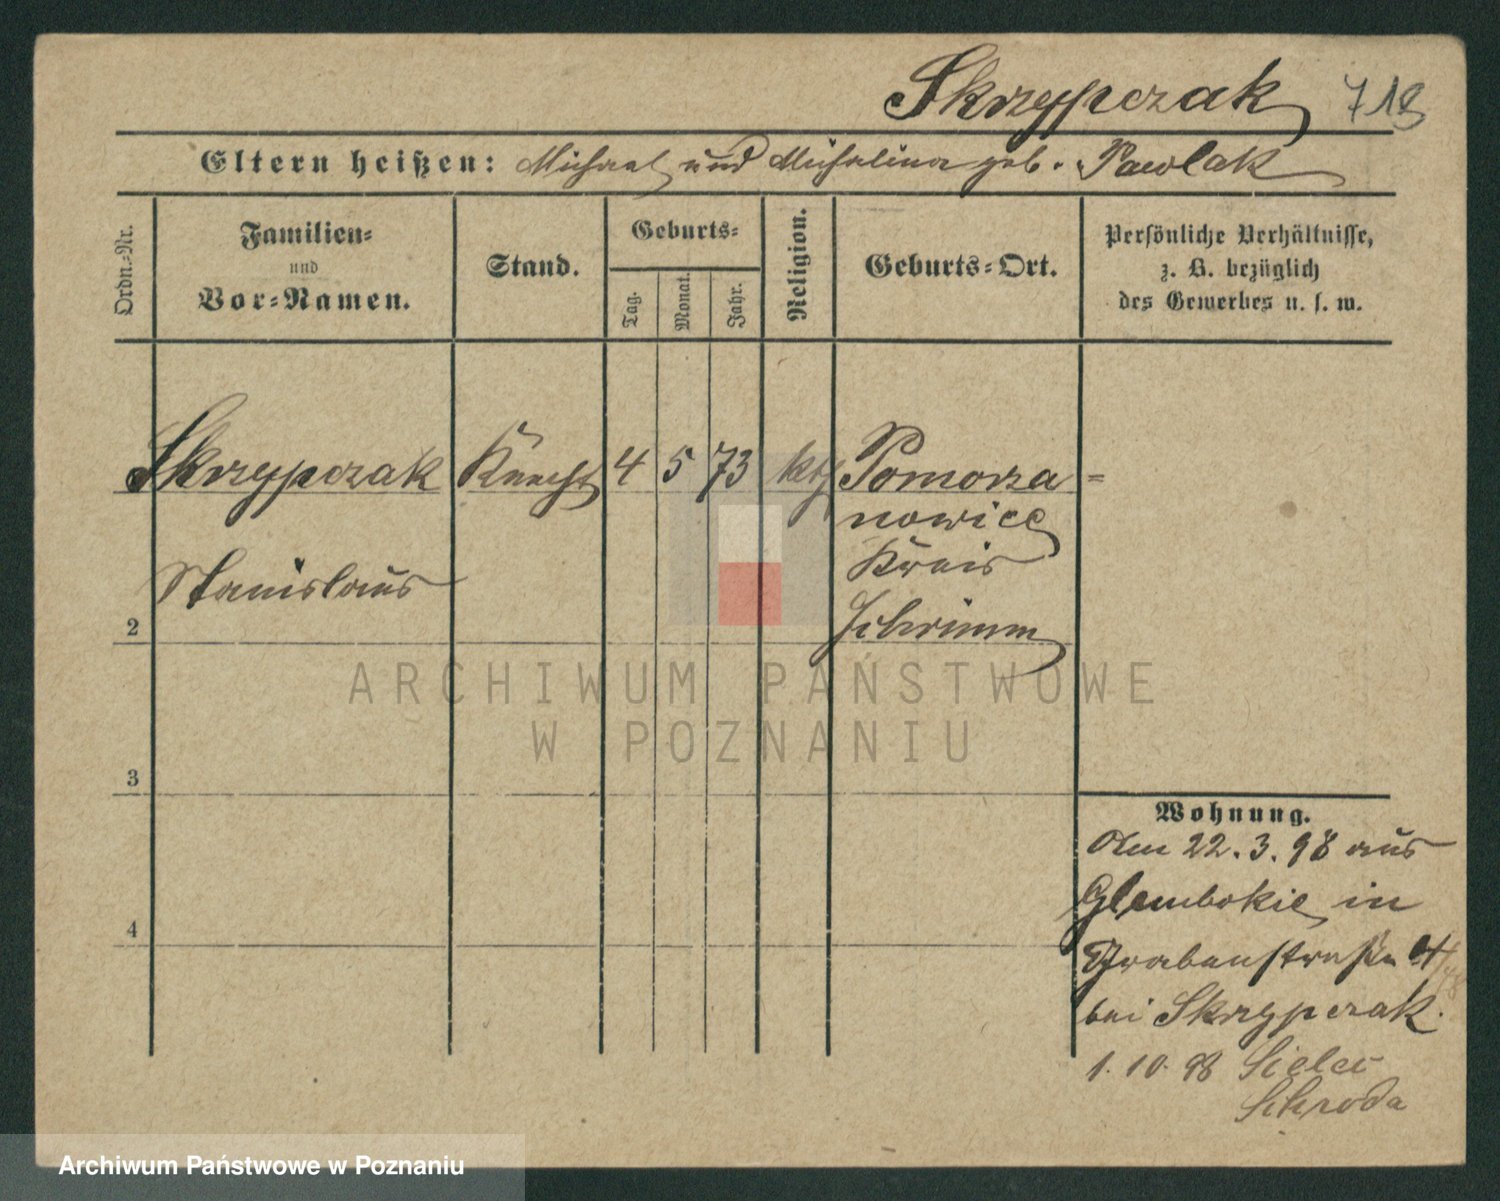 Skrzypczak 718
Eltern heißen: Michael und Michalina geb. Pawlak
Ordn.-Nr.
Familien-
und
Vor-Namen.
Stand.
Geburts-
Tag.
Monat.
Jahr.
Religion.
Geburts-Ort.
Persönliche Verhältnisse,
z. B. bezüglich
des Gewerbes u. s. w.
Skrzypczak Knecht 4 5 73 kth Pomorza=
nowice
Kreis
Stanislaus
Schrimm
2
3
4
Wohnung.
Am 22.3.98 aus
Glembokie in
Grabenstraße 4
bei Skrzypczak.
1.10.98 Sielec
Schroda
ARCHIWUM PAŃSTWOWE
W POZNANIU
Archiwum Państwowe w Poznaniu